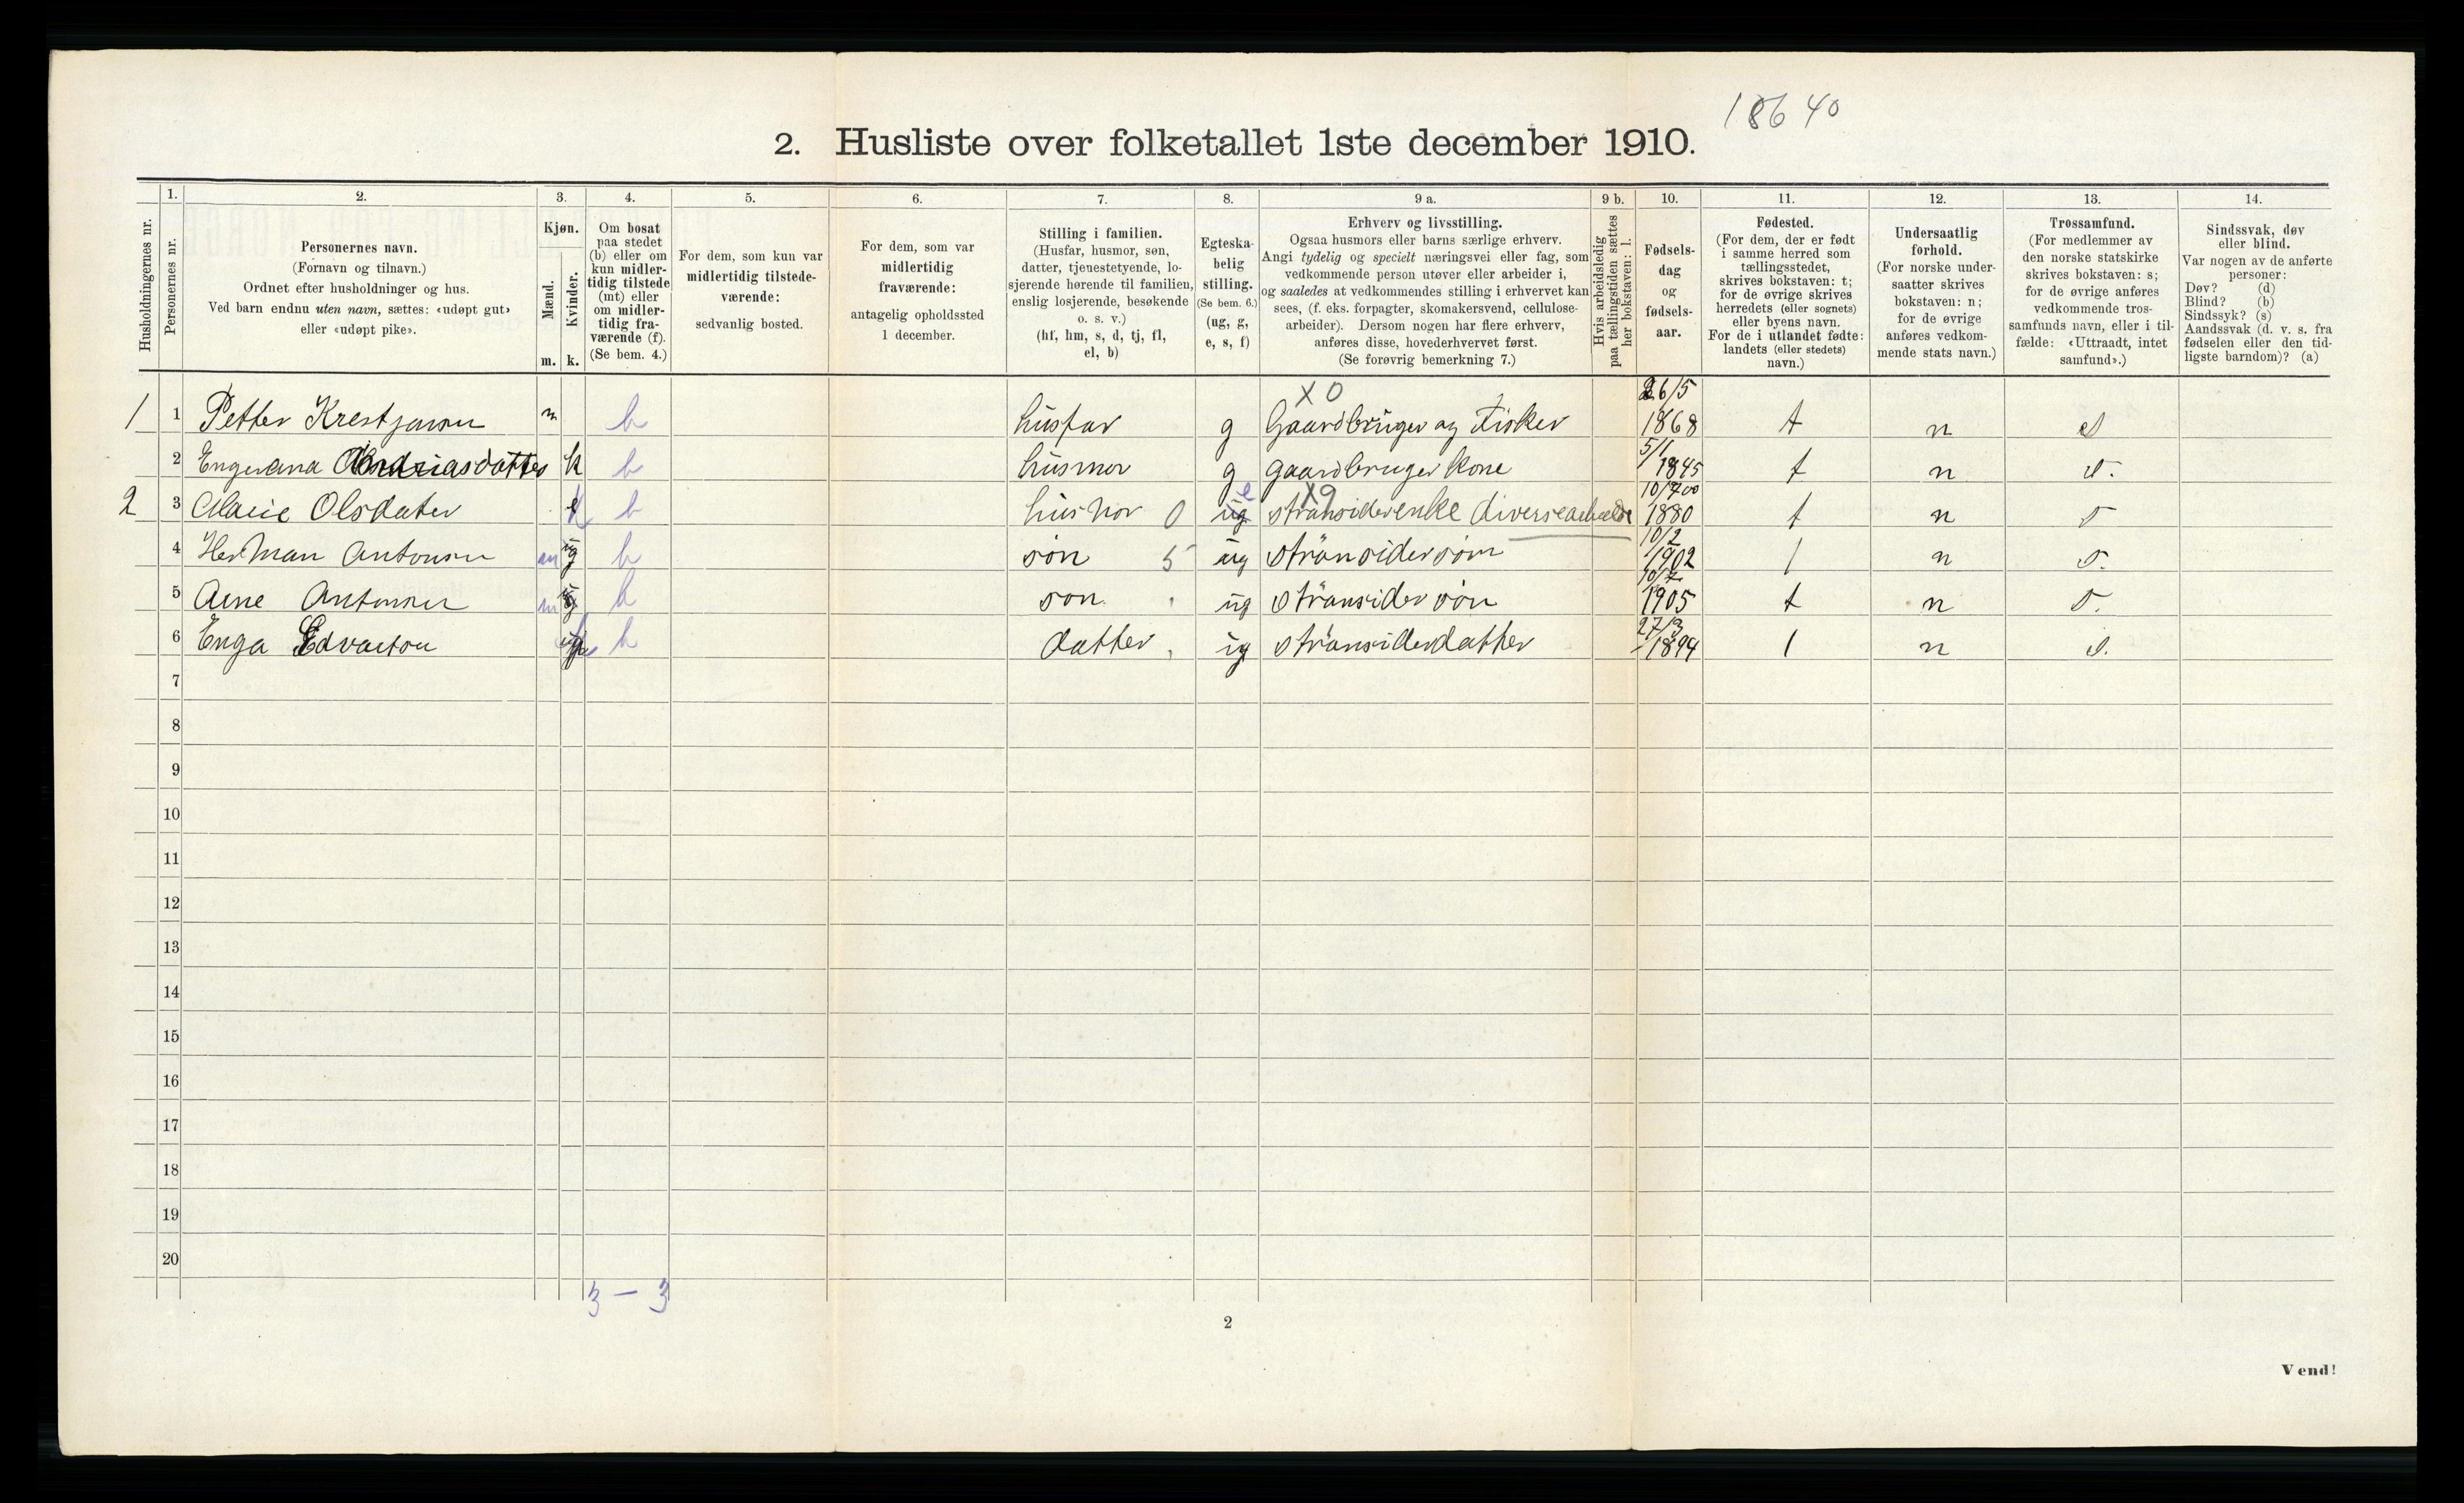 18640
2. Husliste over folketallet 1ste december 1910.
Husholdningernes nr.
1.
Personernes nr.
2.
Personernes navn.
(Fornavn og tilnavn.)
Ordnet efter husholdninger og hus.
Ved barn endnu uten navn, sættes: «udøpt gut»
eller «udøpt pike».
3.
Kjøn.
Mænd.
m.
Kvinder.
k.
4.
Om bosat
paa stedet
(b) eller om
kun midler-
tidig tilstede
(mt) eller
om midler-
tidig fra-
værende (f).
(Se bem. 4.)
5.
For dem, som kun var
midlertidig tilstede-
værende:
sedvanlig bosted.
6.
For dem, som var
midlertidig
fraværende:
antagelig opholdssted
1 december.
7.
Stilling i familien.
(Husfar, husmor, søn,
datter, tjenestetyende, lo-
sjerende hørende til familien,
enslig losjerende, besøkende
o. s. v.)
(hf, hm, s, d, tj, fl,
el, b)
8.
Egteska-
belig
stilling.
(Se bem. 6.)
(ug, g,
e, s, f)
9 a.
Erhverv og livsstilling.
Ogsaa husmors eller barns særlige erhverv.
Angi tydelig og specielt næringsvei eller fag, som
vedkommende person utøver eller arbeider i,
og saaledes at vedkommendes stilling i erhvervet kan
sees, (f. eks. forpagter, skomakersvend, cellulose-
arbeider). Dersom nogen har flere erhverv,
anføres disse, hovederhvervet først.
(Se forøvrig bemerkning 7.)
9 b.
Hvis arbeidsledig
paa tællingstiden sættes
her bokstaven: l.
10.
Fødsels-
dag
og
fødsels-
aar.
11.
Fødested.
(For dem, der er født
i samme herred som
tællingsstedet,
skrives bokstaven: t;
for de øvrige skrives
herredets (eller sognets)
eller byens navn.
For de i utlandet fødte:
landets (eller stedets)
navn.)
12.
Undersaatlig
forhold.
(For norske under-
saatter skrives
bokstaven: n;
for de øvrige
anføres vedkom-
mende stats navn.)
13.
Trossamfund.
(For medlemmer av
den norske statskirke
skrives bokstaven: s;
for de øvrige anføres
vedkommende tros-
samfunds navn, eller i til-
fælde: «Uttraadt, intet
samfund».)
14.
Sindssvak, døv
eller blind.
Var nogen av de anførte
personer:
Døv? (d)
Blind? (b)
Sindssyk? (s)
Aandssvak (d. v. s. fra
fødselen eller den tid-
ligste barndom)? (a)
X 0 26/5
1 1 Petter Krestjansen m b husfar g Gaardbruger og Fisker 1868 t n s
5/1
2 Engerana Andriasdatter k b husmor g gaardbruger kone 1845 t n s.
e X9 10/7 00
2 3 Marie Olsdater k b husmor 0 ug stransiderenke 1880 t n s
10/2
4 Herman Antonsen m b søn 5 ug stransidersøn 1902 t n s.
10/7
5 Arne Antonsen m b søn ug stransidersøn 1905 t n s.
27/3
6 Enga Edvarson k b datter ug stransiderdatter 1894 t n s.
7
8
9
10
11
12
13
14
15
16
17
18
19
20
3 – 3
2
Vend!